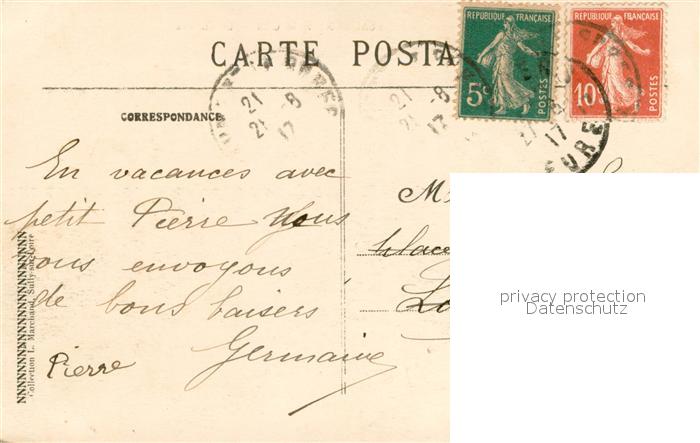 CARTE POSTA
RÉPUBLIQUE FRANÇAISE
5c
POSTES
RÉPUBLIQUE FRANÇAISE
10c
POSTES
21 -8
17
CORRESPONDANCE
En vacances avec
petit Pierre Nous
vous envoyons
de bons baisers
Germaine
Pierre
M
place
Collection L. Marchand, Sully-sur-Loire
privacy protection
Datenschutz